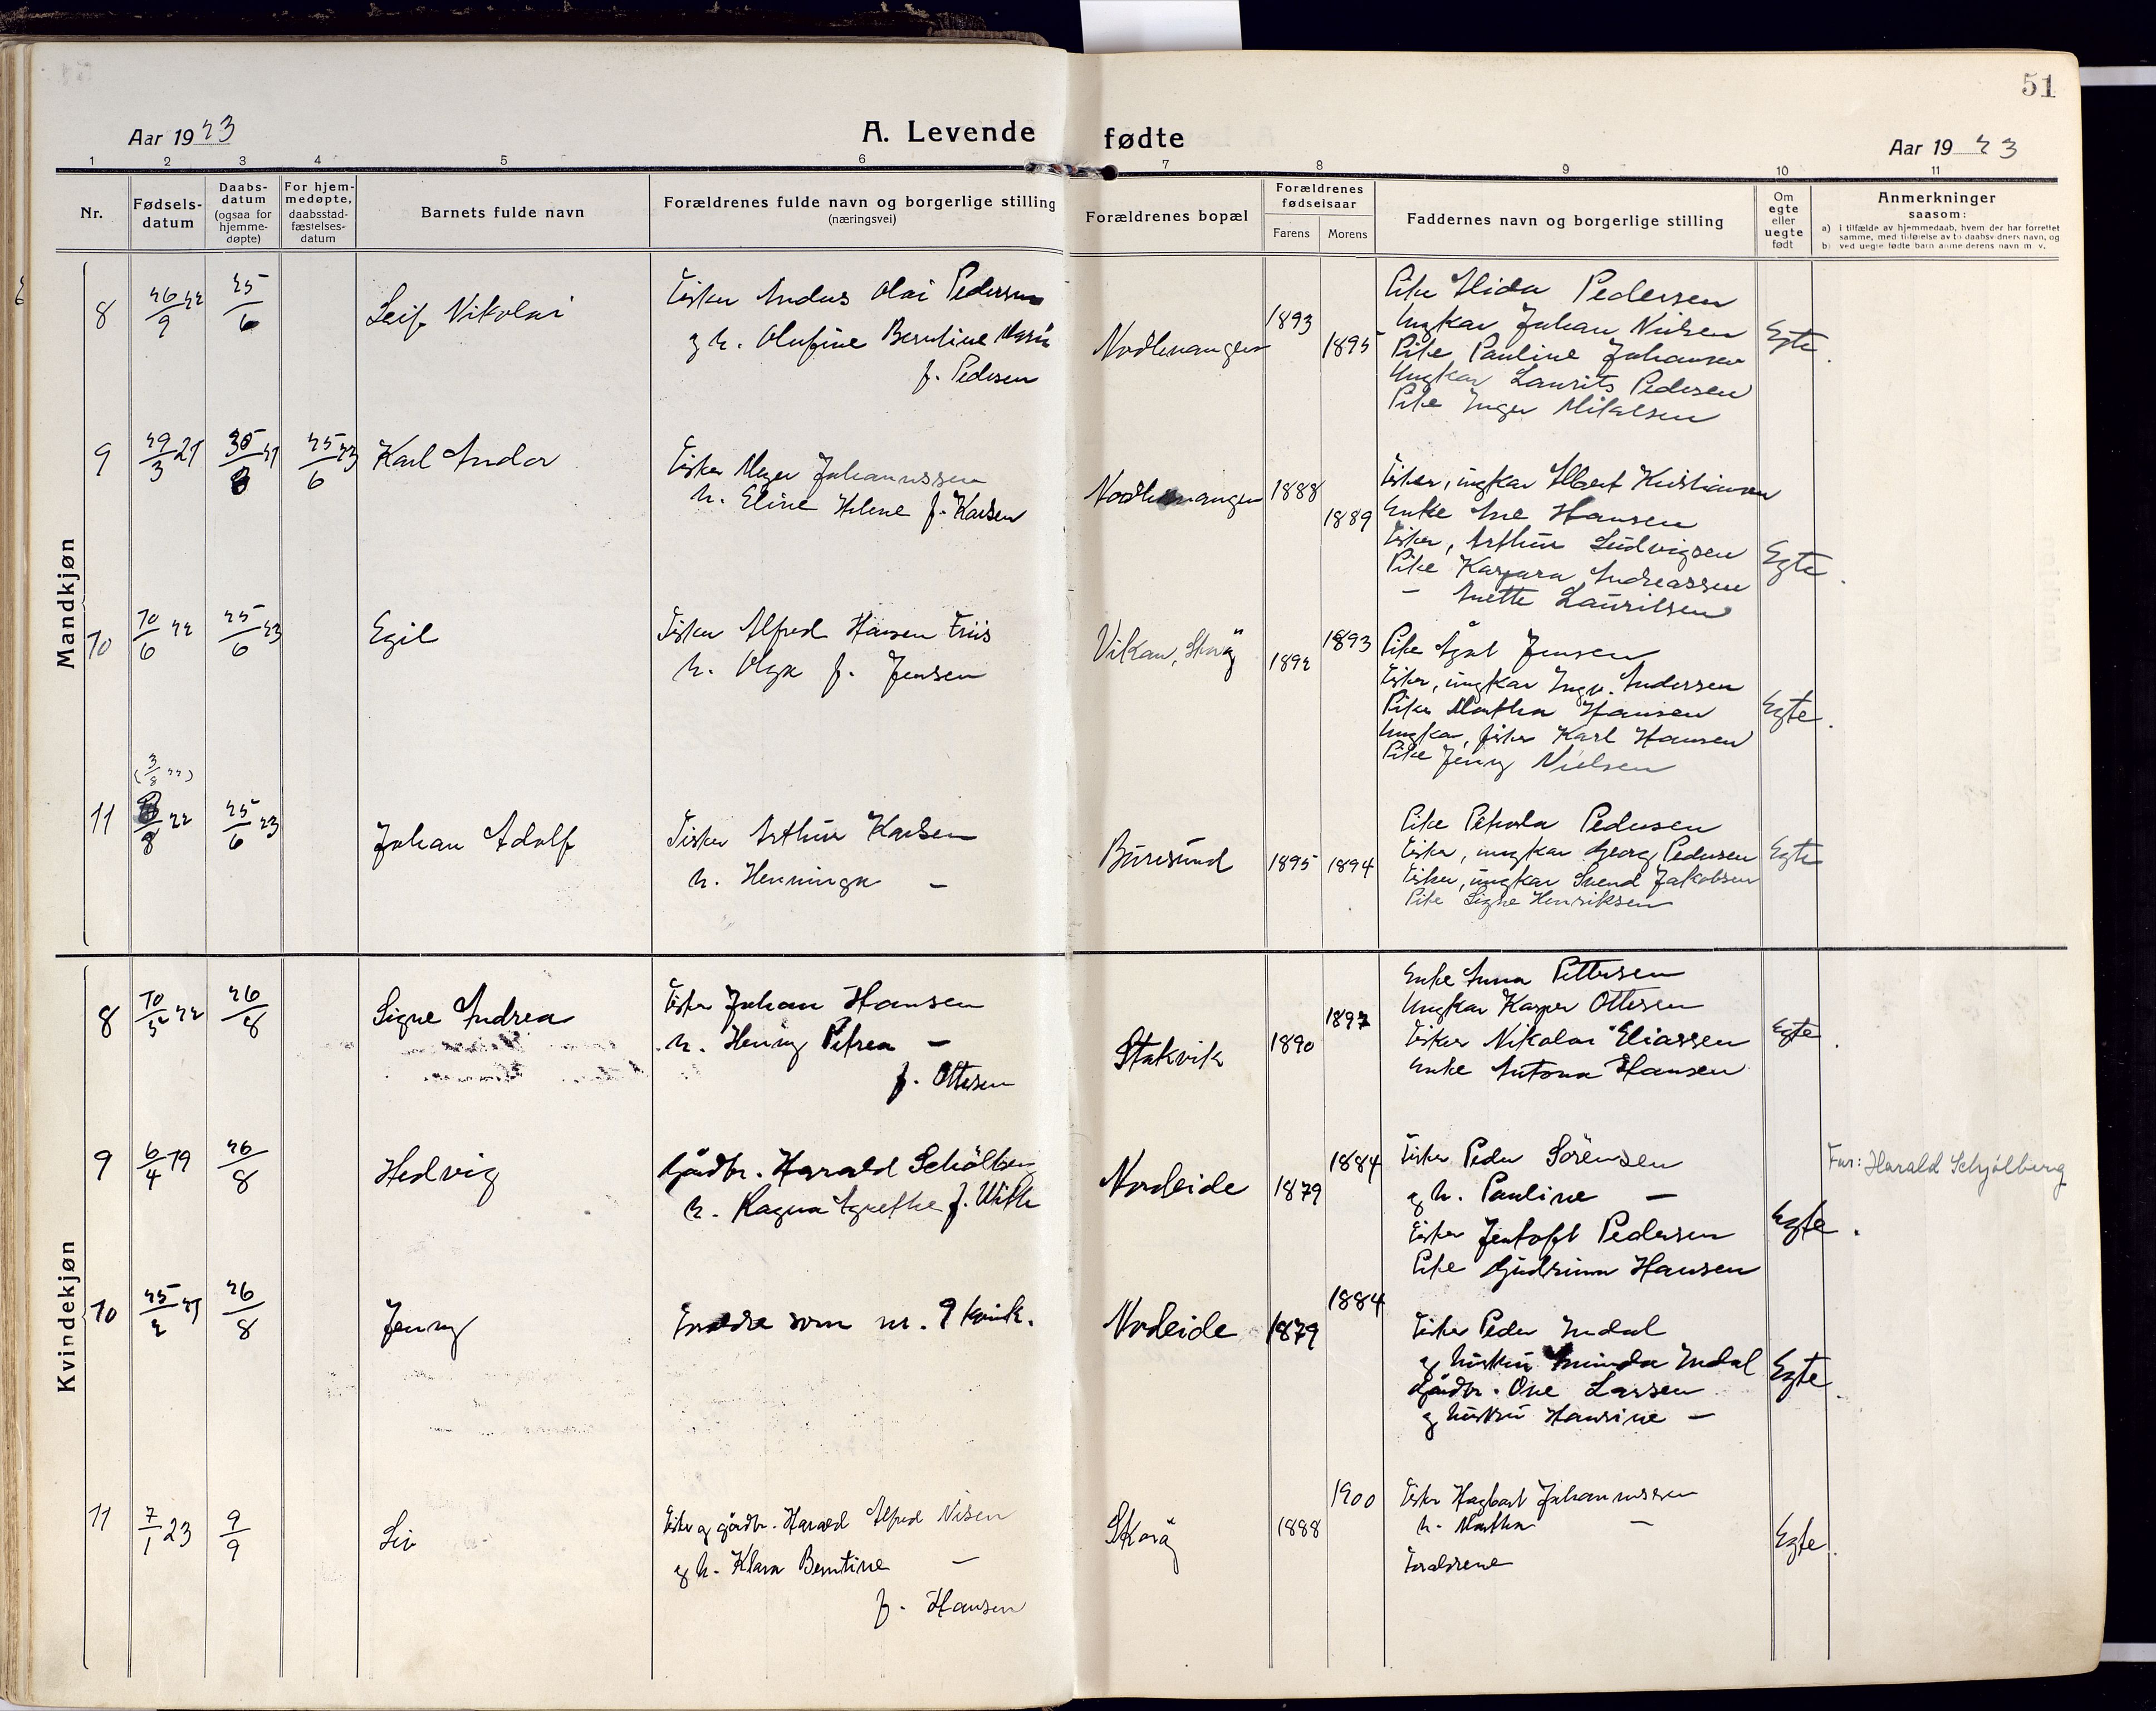 51
Aar 1923
A. Levende fødte
Aar 1923
1 2 3 4 5 6 7 8 9 10 11
Nr.
Fødsels-
datum
Daabs-
datum
(ogsaa for
hjemme-
døpte)
For hjem-
medøpte,
daabsstad-
fæstelses-
datum
Barnets fulde navn
Forældrenes fulde navn og borgerlige stilling
(næringsvei)
Forældrenes bopæl
Forældrenes
fødselsaar
Farens Morens
Faddernes navn og borgerlige stilling
Om
egte
eller
uegte
født
Anmerkninger
saasom:
a) i tilfælde av hjemmedaab, hvem der har forrettet
samme, med tilføielse av to daabsvidners navn, og
b) ved uegte fødte barn anmelderens navn m. v.
Mandkjøn
8
26/9 22
25/6
Leif Nikolai
Fisker Andus Olai Pedersen
g h. Olufine Berntine Marie
f. Pedersen
1893
1895
Pike Alida Pedersen
Ungkar Johan Nielsen
Pike Pauline Johansen
Ungkar Laurits Pedersen
Pike Inger Mikalsen
Egte.
9
29/3 21
30/8 21
25/6 23
Karl Andor
Fisker Meyer Johannessen
h. Eline Helene f. Karlsen
1888
1889
Fisker, ungkar Albert Kristiansen
Enke Ane Hansen
Fisker, Arthur Ludvigsen
Pike Kaspara Andreassen
— Anette Lauritsen
Egte.
10
10/6 22
25/6 23
Egil
Fisker Alfred Hansen Friis
h. Olga f. Jensen
Vikan,
1892
1893
Pike Jensen
Fisker, ungkar Ingv. Andersen
Pike Martha Hansen
Ungkar, fisker Karl Hansen
Pike Jenny Nielsen
Egte.
11
(3/8 22)
8 22
25/6 23
Johan Adolf
Fisker Arthur Karlsen
h. Henninga —
Burøsund
1895
1894
Pike Petrola Pedersen
Fisker, ungkar Georg Pedersen
Fisker, ungkar Svend Jakobsen
Pike Signe Henriksen
Egte
Kvindekjøn
8
10/5 22
26/8
Signe Andrea
Fisker Johan Hansen
h. Henny Petrea —
f. Ottesen
Stakvik
1890
1897
Enke Anna Pettersen
Ungkar Kasper Ottesen
Fisker Nikolai Eliassen
Enke Antona Hansen
Egte.
9
6/4 19
26/8
Hedvig
Gårdbr. Harald Schölberg
h. Ragna Agrethe f. With
Nordeide
1879
1884
Fisker Peder Sörensen
g h. Pauline —
Fisker Jentoft Pedersen
Pike Gudrunn Hansen
Egte.
Far: Harald Schjölberg
10
25/2 21
26/8
Jenny
Forældre som nr. 9 kvink.
Nordeide
1879
1884
Fisker Peder Indal
g hustru Indal
Gårdbr. Ove Larsen
g hustru Hansine —
Egte.
11
7/1 23
9/9
Liv
Fisker og gårdbr. Harald Alfred Nilsen
g h. Klara Berntine —
f. Hansen
1888
1900
Fisker Hagbart Johannessen
h. Martha —
Forældrene
Egte.